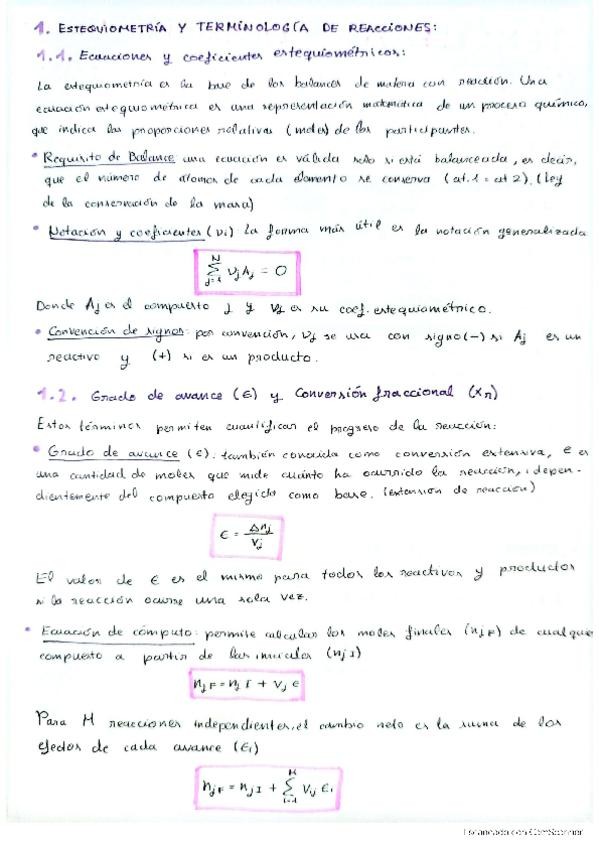 1. ESTEQUIOMETRÍA Y TERMINOLOGÍA DE REACCIONES:
1.1. Ecuaciones y coeficientes estequiométricos:
La estequiometría es la base de los balances de materia con reacción. Una
ecuación estequiométrica es una representación matemática de un proceso químico,
que indica las proporciones relativas (moles) de los participantes.
• Requisito de Balance una ecuación es válida solo si está balanceada, es decir,
que el número de átomos de cada elemento se conserva (at. 1 = at 2). (Ley
de la conservación de la masa)
• Notación y coeficientes (νi) La forma más útil es la notación generalizada
N ∑ j=1 νj Aj = 0
Donde Aj es el compuesto j y νj es su coef. estequiométrico.
• Convención de signos: por convención, νj se usa con signo (-) si Aj es un
reactivo y (+) si es un producto.
1.2. Grado de avance (ϵ) y Conversión fraccional (Xn)
Estos términos permiten cuantificar el progreso de la reacción:
• Grado de avance (ϵ): también conocida como conversión extensiva, ϵ es
una cantidad de moles que mide cuánto ha ocurrido la reacción, indepen-
dientemente del compuesto elegido como base. (extensión de reacción)
ϵ = Δnj / νj
El valor de ϵ es el mismo para todos los reactivos y productos
si la reacción ocurre una sola vez.
• Ecuación de cómputo: permite calcular los moles finales (njF) de cualquie
compuesto a partir de las iniciales (njI)
njF = njI + νj ϵ
Para M reacciones independientes, el cambio neto es la suma de los
efectos de cada avance (ϵi)
njF = njI + M ∑ i=1 νij ϵi
Escaneado con CamScanner